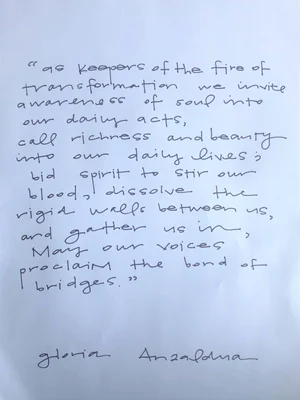 "as keepers of the fire of
transformation we invite
awareness of soul into
our daily acts,
call richness and beauty
into our daily lives;
bid spirit to stir our
blood, dissolve the
rigid walls between us,
and gather us in,
Many our voices
proclaim the bond of
bridges."
gloria Anzaldua